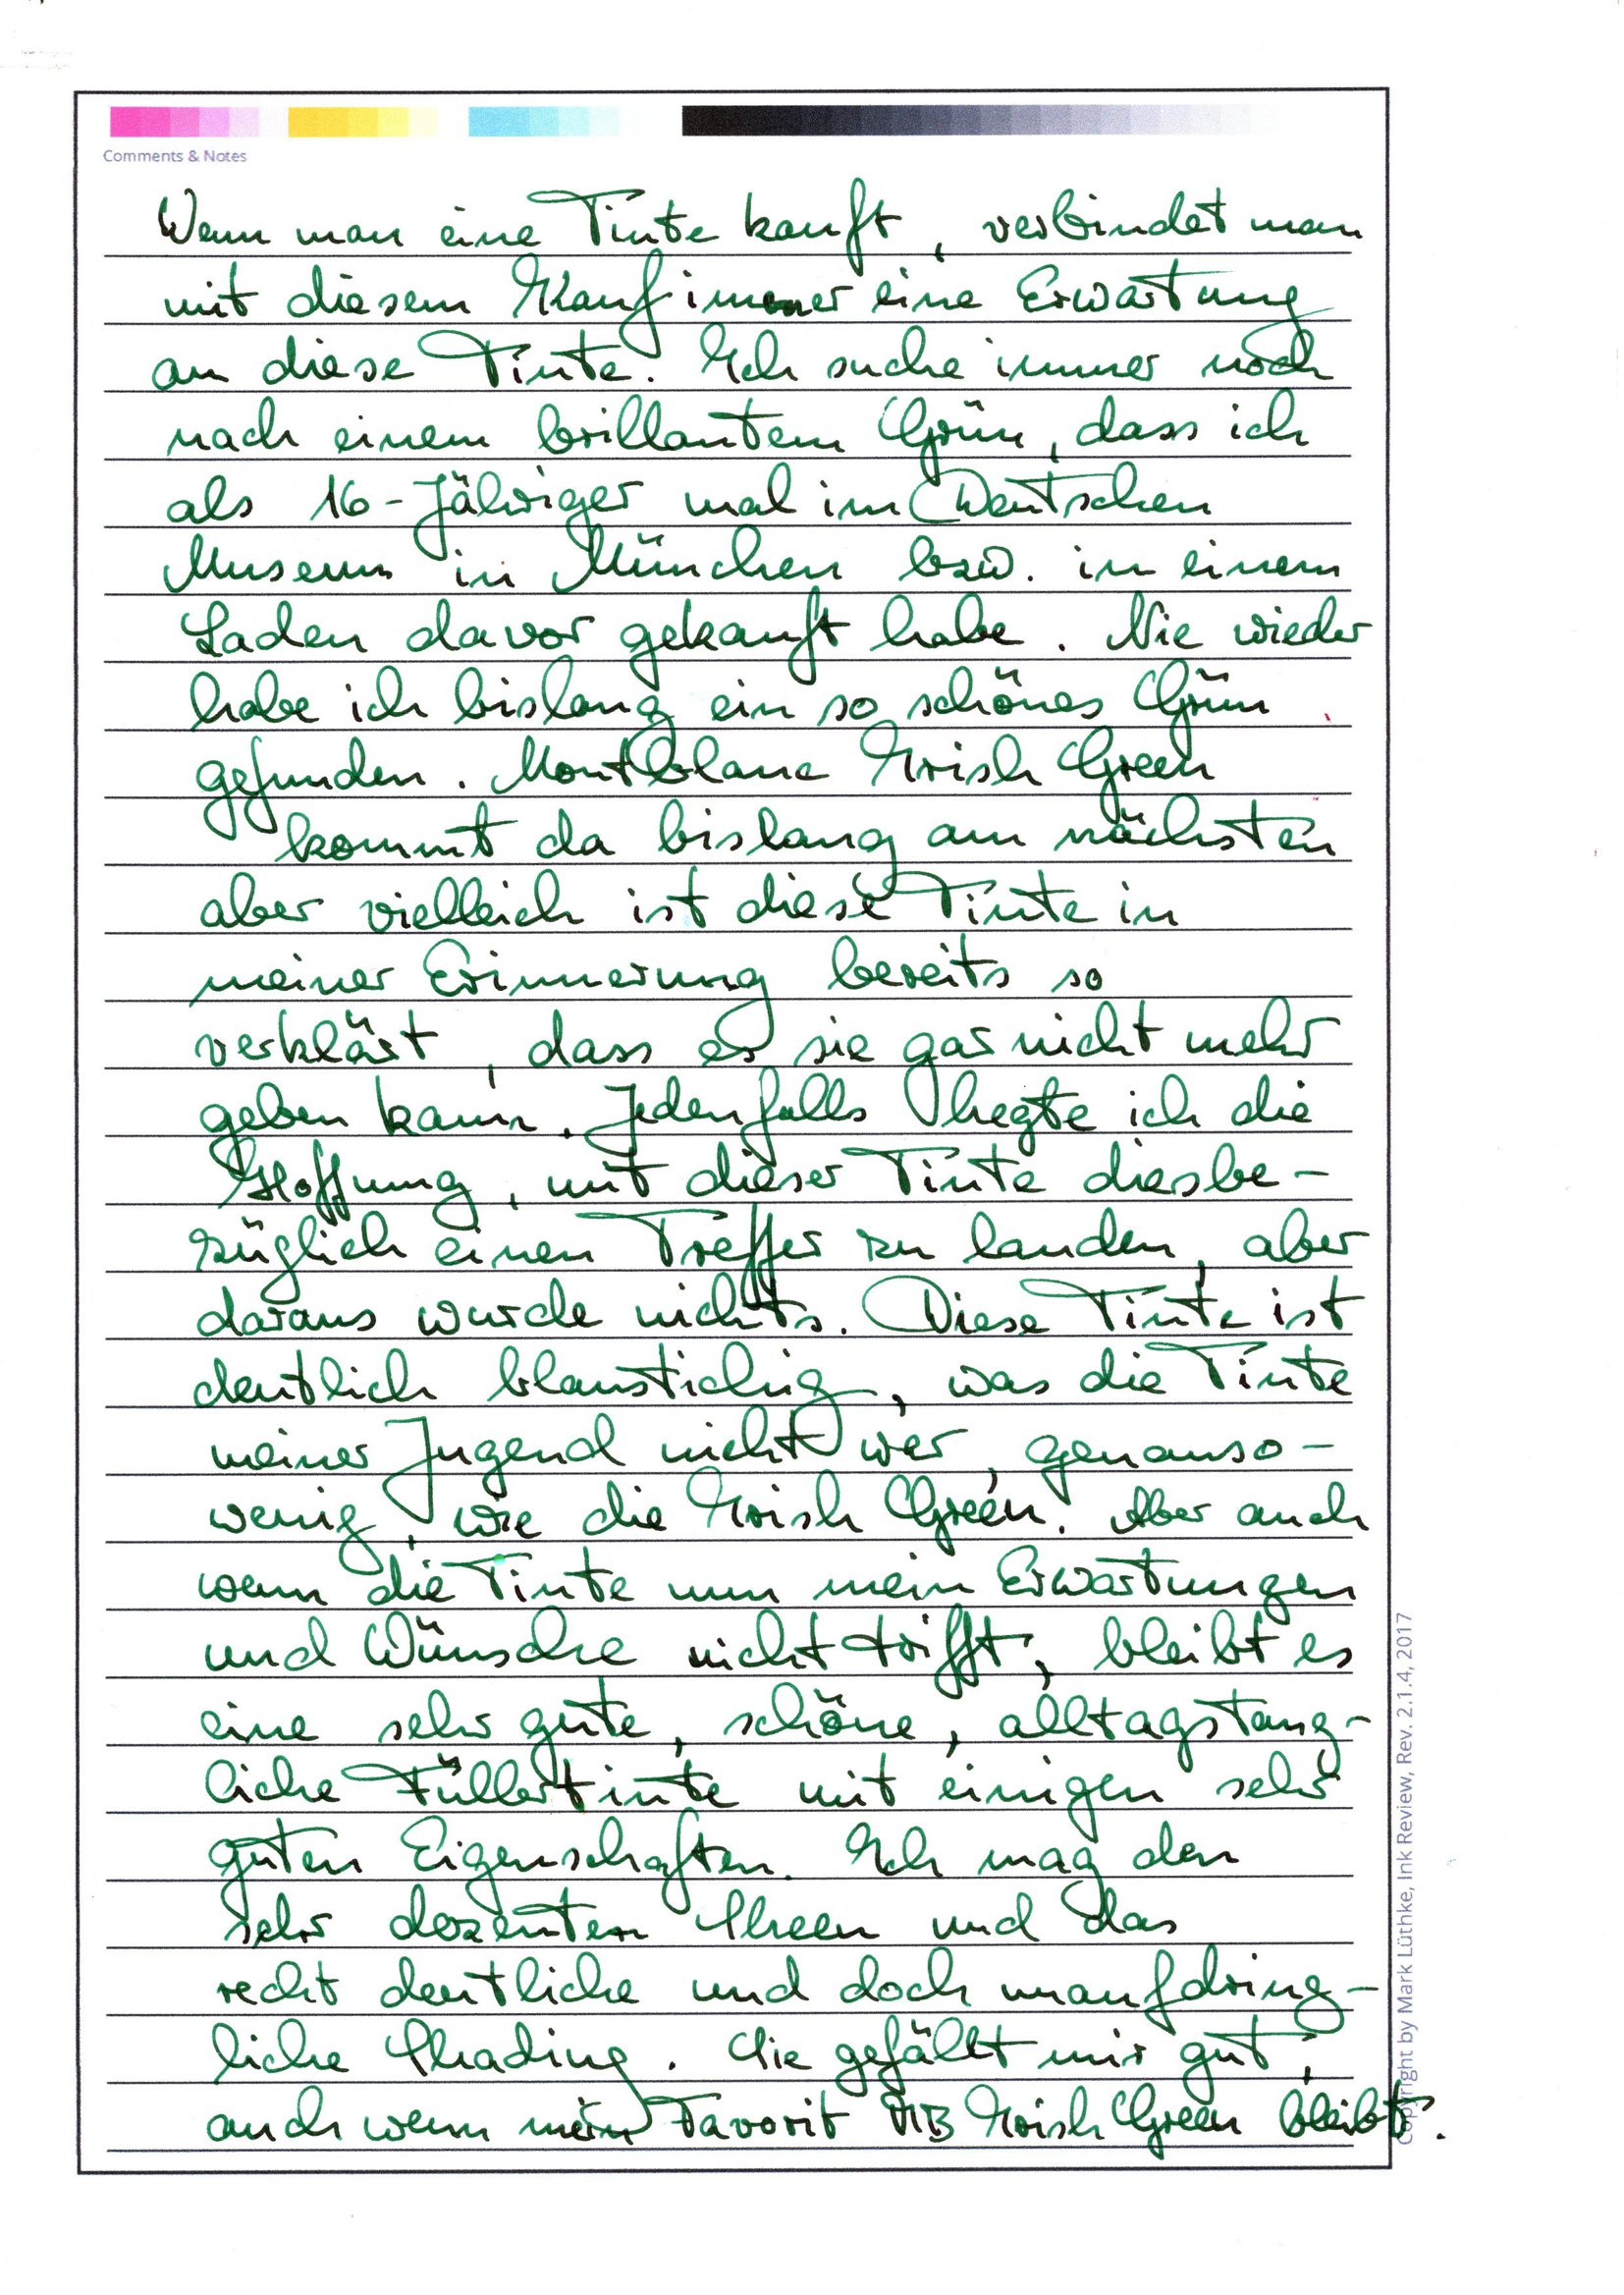 Comments & Notes
Wenn man eine Tinte kauft, verbindet man
mit diesem Kauf immer eine Erwartung
an diese Tinte. Ich suche immer noch
nach einem brillantem Grün, dass ich
als 16-Jähriger mal im Deutschen
Museum in München bzw. in einem
Laden davor gekauft habe. Nie wieder
habe ich bislang ein so schönes Grün
gefunden. Montblanc Irish Green
kommt da bislang am nächsten
aber vielleich ist diese Tinte in
meiner Erinnerung bereits so
verklärt, dass es sie gar nicht mehr
geben kann. Jedenfalls hegte ich die
Hoffnung, mit dieser Tinte diesbe-
züglich einen Treffer zu landen, aber
daraus wurde nichts. Diese Tinte ist
deutlich blaustichig, was die Tinte
meiner Jugend nicht war, genauso-
wenig, wie die Irish Green. Aber auch
wenn die Tinte nun mein Erwartungen
und Wünsche nicht trifft, bleibt es
eine sehr gute, schöne, alltagstaug-
liche Füllertinte mit einigen sehr
guten Eigenschaften. Ich mag den
sehr dezenten Sheen und das
recht deutliche und doch unaufdring-
liche Shading. Sie gefällt mir gut,
auch wenn mein Favorit MB Irish Green bleibt.
Copyright by Mark Lüthke, Ink Review, Rev. 2.1.4, 2017